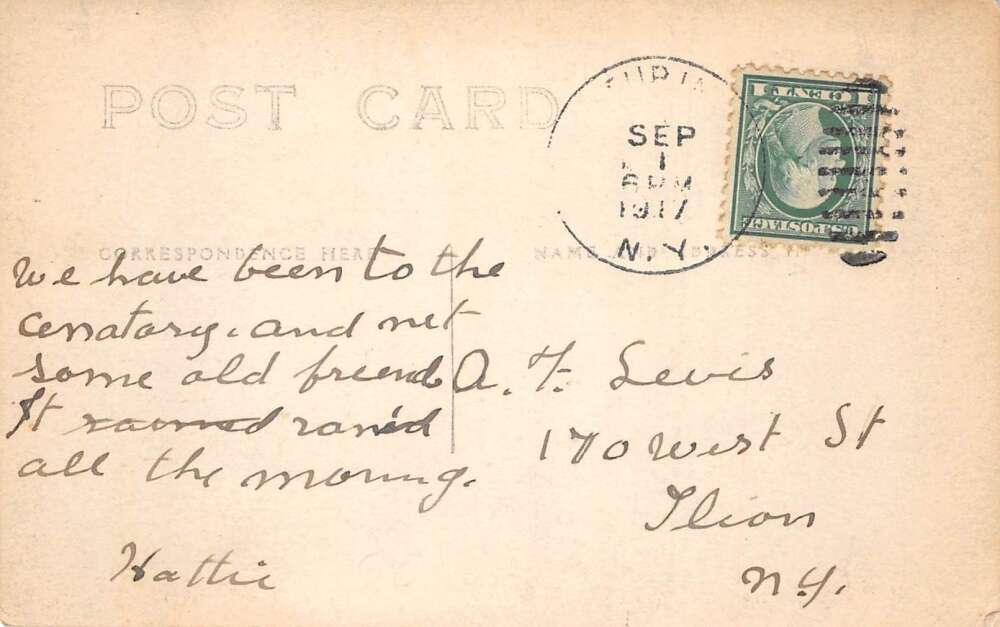 POST CARD
TURIN
SEP
1
6 PM
1917
N.Y.
1 CENT 1
U.S. POSTAGE
CORRESPONDENCE HERE
NAME AND ADDRESS
We have been to the
cematary. and met
some old friends
It rained
all the morning.
Hattie
A. F. Lewis
170 West St
Ilion
N.Y.